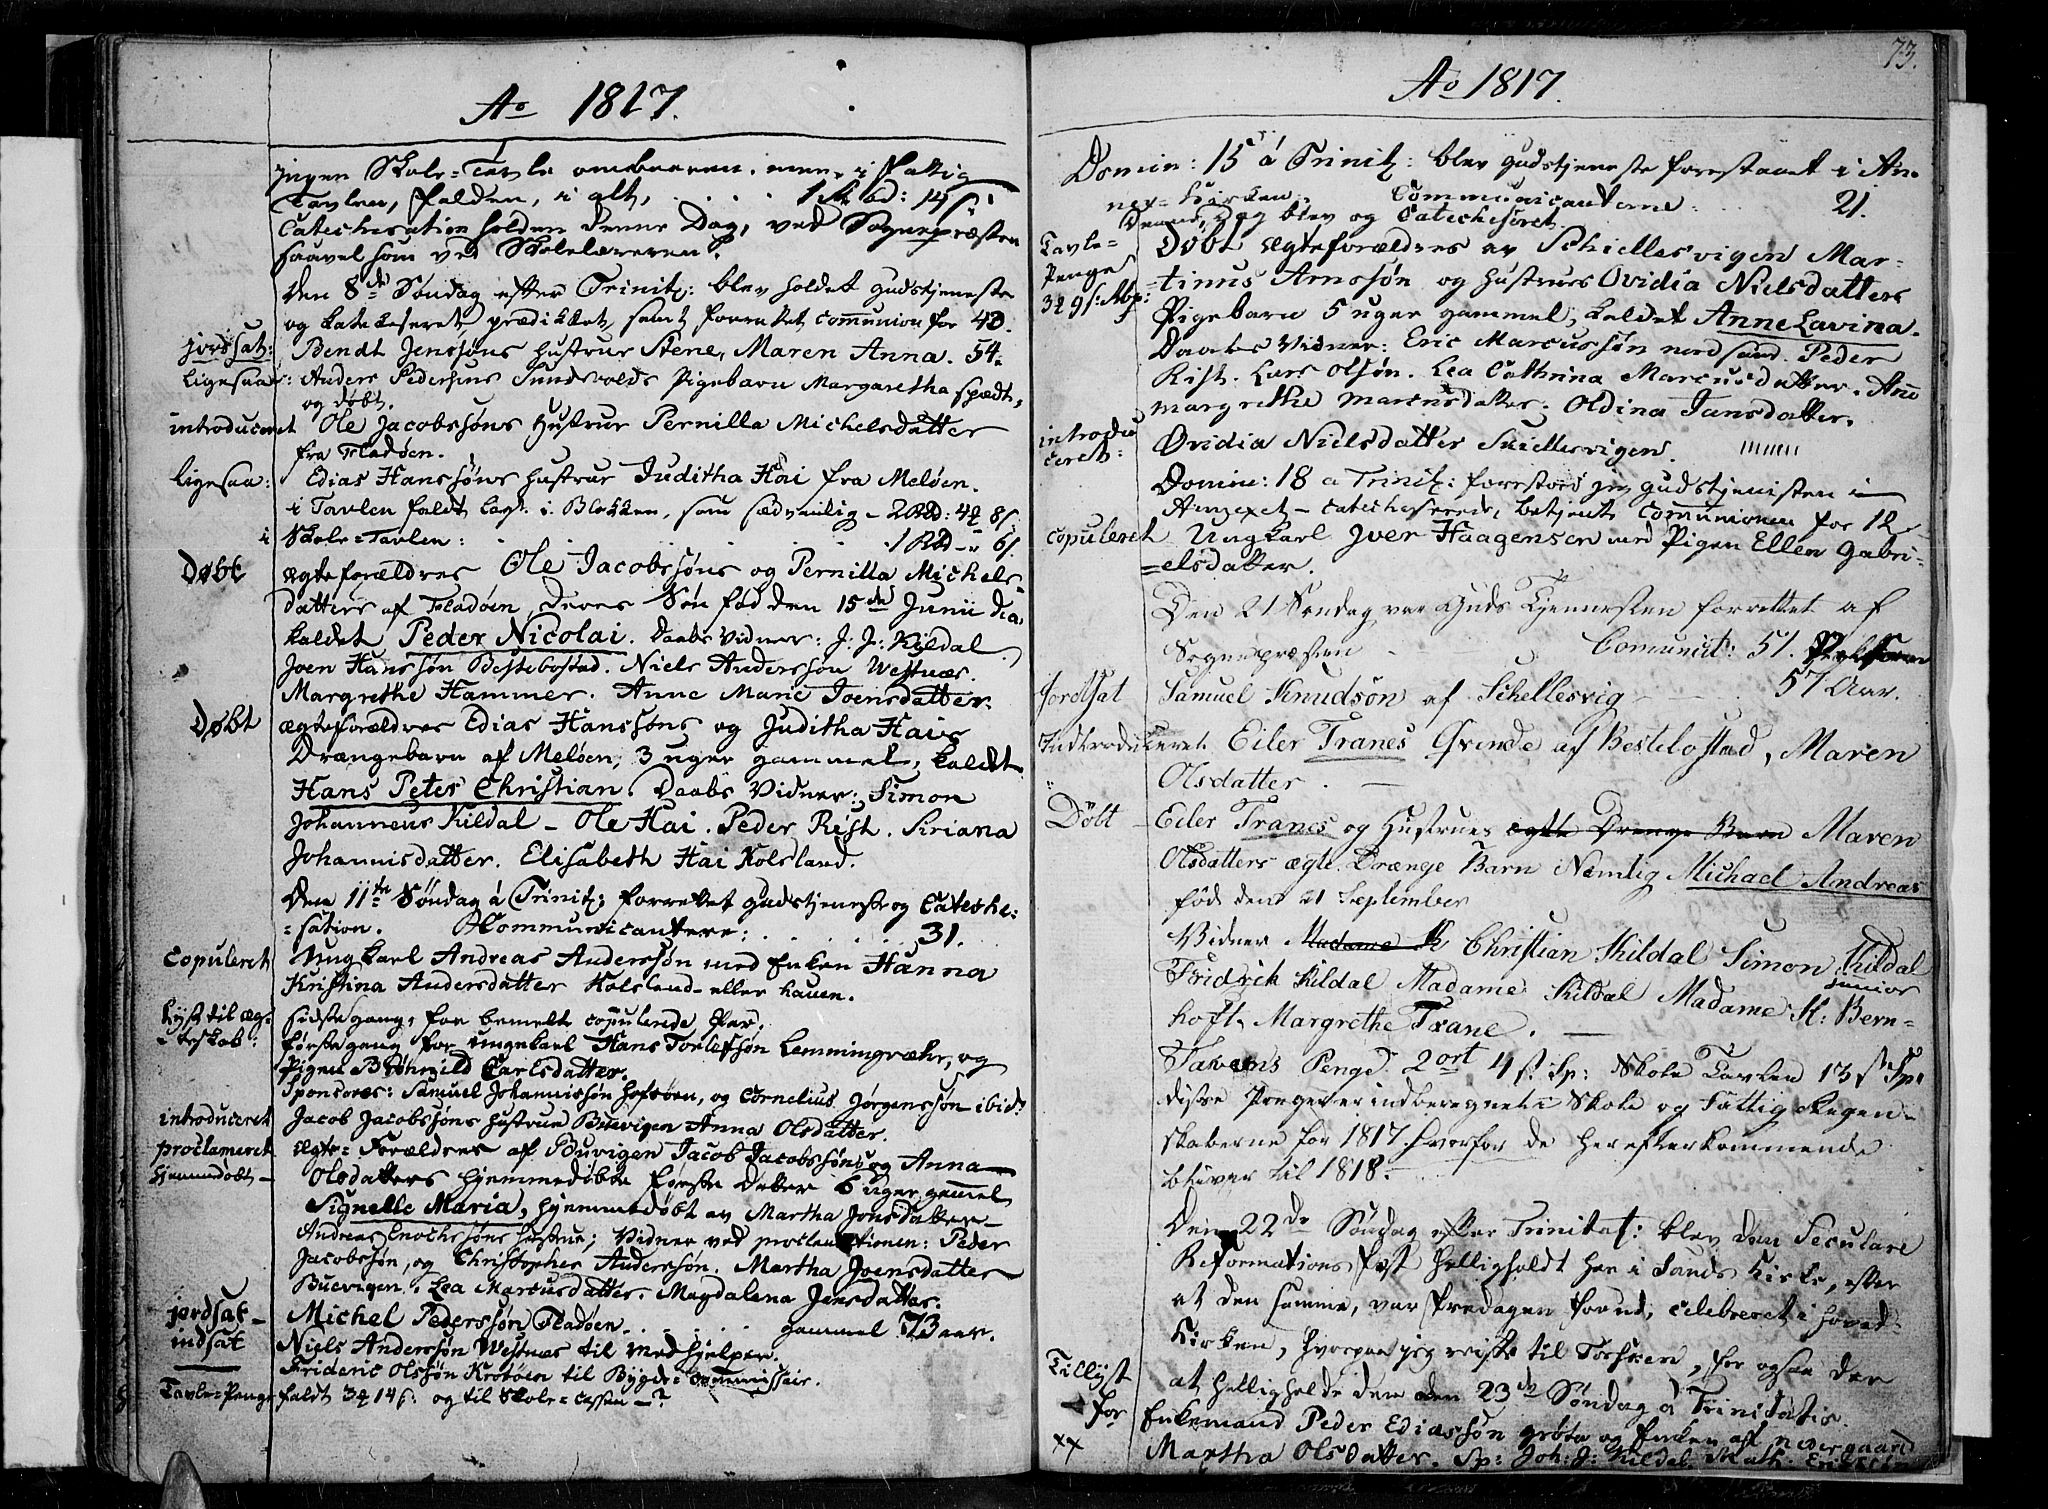 Ao 1817.
ingen Skole-Tavle ombaaren, men i Fattig
Tavlen, falden, i alt, . . . . 14 s
Catechisation holden denne Dag, ved Sognepræsten
saavel som ved Skolelæreren.
Den 8de Søndag efter Trinit: blev holdet Gudstjeneste
og katekiseret, prædikket, samt forrettet communion for 40.
jordsat: Bendt Jenssøns Hustrue Stene, Maren Anna. 54.
ligesaa: Anders Pedersens Sundsvolds Pigebarn Margaretha spædt,
og døbt.
introduceret Ole Jacobssøns Hustrue Pernilla Michelsdatter
fra Fladøen.
ligesaa: Edias Hanssøns Hustrue Juditha Hai fra Meløen.
i Tavlen faldt lagt i Blokken, som sædvanlig - 2 Rd: 4 8 s.
i Skole-Tavlen: . . . . 1 Rd - " 6 s.
Døbt ægteforældres Ole Jacobssøns og Pernilla Michels
datters af Fladøen, deres Søn fød den 15de Junii
kaldet Peder Nicolai. Daabs Vidner: J: J: Kildal.
Joen Hanssøn Bestebostad. Niels Anderssøn Westnæs.
Margrethe Hammer. Anne Marie Joensdatter.
Døbt ægteforældres Edias Hanssøns og Juditha Hais
Drængebarn af Meløen, 3 uger gammel, kaldt
Hans Peter Christian. Daabs Vidner: Simon
Johanneus Kildal - Ole Hai. Peder Rist. Siriana
Johannisdatter. Elisabeth Hai Kolsland.
Den 11te Søndag á Trinit: forrettet Gudstjeneste og Cateche:
=sation. Kommunicantere: . . . . 31.
Copuleret Ungkarl Andreas Anderssøn med Enken Hanna
Kristina Andersdatter Kolsland - eller haven.
Lyst til æg-
teskab: sidste gang, for bemelte copulerede Par.
første gang for Ungekarl Hans Tollefssøn Lemmingvær, og
Pigen Brønnild Carlsdatter.
Sponsores: Samuel Johannissøn Hofsøen, og Cornelius Jørgenssøn ibid:
introduceret Jacob Jacobssøns Hustrue Buevigen Anna Olsdatter.
proclameret Ægte-Forældres af Buvigen Jacob Jacobssøns og Anna
hjemmedøbt - Olsdatters hjemmedøbte første Datter 6 uger gammel
Signelle Maria, hjemmedøbt av Martha Jonsdatter -
Andreas Enochssøns Hustrue; Vidner ved proclamationen: Peder
Jacobssøn, og Christopher Anderssøn. Martha Joensdatter
Buevigen. Lea Marcusdatter. Magdalena Jensdatter.
jordsat - Michel Pederssøn Fladøen. . . . . gammel 73 aar.
indsat Niels Anderssøn Westnæs til Medhjelper.
Frideric Olssøn Krotøen til Bygde-Commissair.
Tavle-Penge faldt 14 s. og til Skole-Cassen - ?
73.
Ao 1817.
Domin: 15 á Trinit: blev Gudstjeneste forestaaet i An-
nex-Kirken: Communicanterne: 21.
Denne Dag blev og Catechiseret.
Tavle-
Penge
Døbt ægteforældres av Schiellesvigen Mar-
=tinus Arnssøn og Hustrues Ovidia Nielsdatters
Pigebarn 5 uger gammel, kaldet Anne Lavina.
Daabs Vidner: Eric Marcussøn nordsand. Peder
Rist. Lars Olsøn. Lea Cathrina Marcusdatter. Ane
Margrethe Marcusdatter. Oldina Jansdatter.
introdu
ceret: Ovidia Nielsdatter Skiellesvigen.
Domin: 18 a Trinit: forestod jeg Gudstjenisten i
Annexet - catechiserede, betjente Comunionen for 12
Copuleret Ungkarl Iver Haagensen med Pigen Ellen Gabri-
=elsdatter.
Den 21 Søndag var Guds Tjennesten forrettet af
Sognepræsten - Comunict: 51.
Jordsat Samuel Knudsøn af Schellesvig - 57 Aar.
Indtroduceret Eiler Tranes Qvinde af Bestebostad, Maren
Olsdatter.
Døbt - Eiler Tranes og Hustrues ægte Drenge Barn Maren
Olsdatters ægte Drænge Barn Nemlig Michael Andreas
fød den 21 September
Vidner Madame K Christian Kildal Simon Kildal
Fridrich Kildal Madame Kildal Madame K: Bern-
junior
hoft, Margrethe Trane. -
Tavlens Penge 2 ort 4 s. Sp: Skole Tavlen 13 s Sp:
disse Penger er indberegnet i Skole og Fattig Regen-
skaberne for 1817. hvorfor de herefter kommende
bliver til 1818.
Den 22de Søndag efter Trinitat: blev den Seculare
Reformations Fest helligholdt her i Sands Kirke, efter
at den samme, var Fredagen forud, celebreret i Hoved-
Kirken, hvorpaa jeg reiste til Torsken, for ogsaa der
at helligholde den den 23de Søndag á Trinitatis.
Tillyst
for Enkemand Peder Ediassøn grøta og Enken af nedergaard
xx Martha Olsdatter. Sp: Joh: J: Kildal. Math.